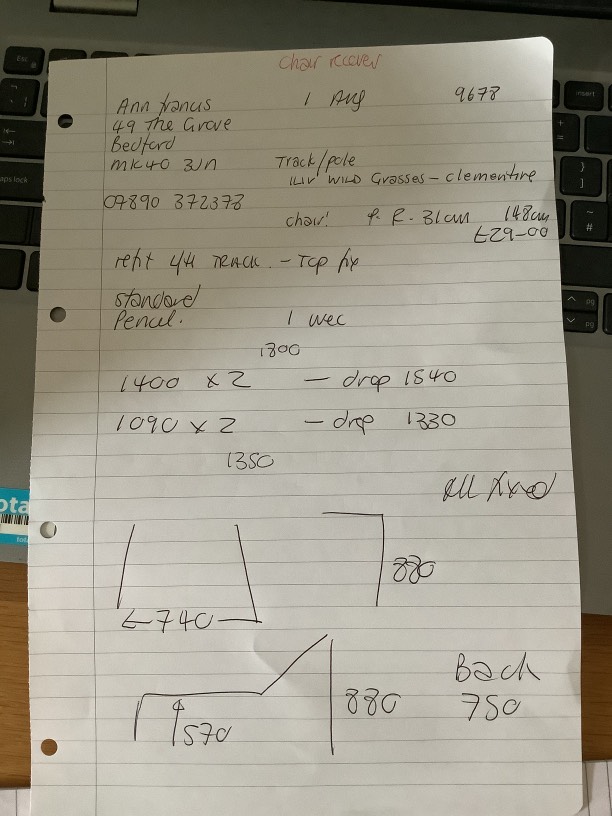 Chair recover
Ann Francis 1 Aug 9678
49 The Grove
Bedford
MK40 3JN Track/pole
iLiv WILD Grasses - clementine
07890 372373
chair! P.R. 31cm 148cm
£29-00
refit 4/4 TRACK. - Top fix
standard
Pencil. 1 wec
1800
1400 x 2 - drop 1540
1090 x 2 - drop 1330
1350
All fixed
880
←740→
Back
880 750
570